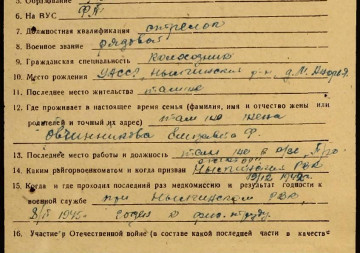 5. Образование
6. На ВУС Ф.А.
7. Должностная квалификация стрелок
8. Военное звание рядовой
9. Гражданская специальность
10. Место рождения УАССР Нылгинский р-н д. М.
11. Последнее место жительства там же
12. Где проживает в настоящее время семья (фамилия, имя и отчество жены или
родителей и точный их адрес) там же жена
Овчинникова Елизавета Ф.
13. Последнее место работы и должность там же
14. Каким райгорвоенкоматом и когда призван Нылгинский РВК
15. Когда и где проходил последний раз медкомиссию и результат годности к
военной службе при Нылгинском РВК
годен к физ. труду
16. Участие в Отечественной войне (в составе какой последней части в качестве